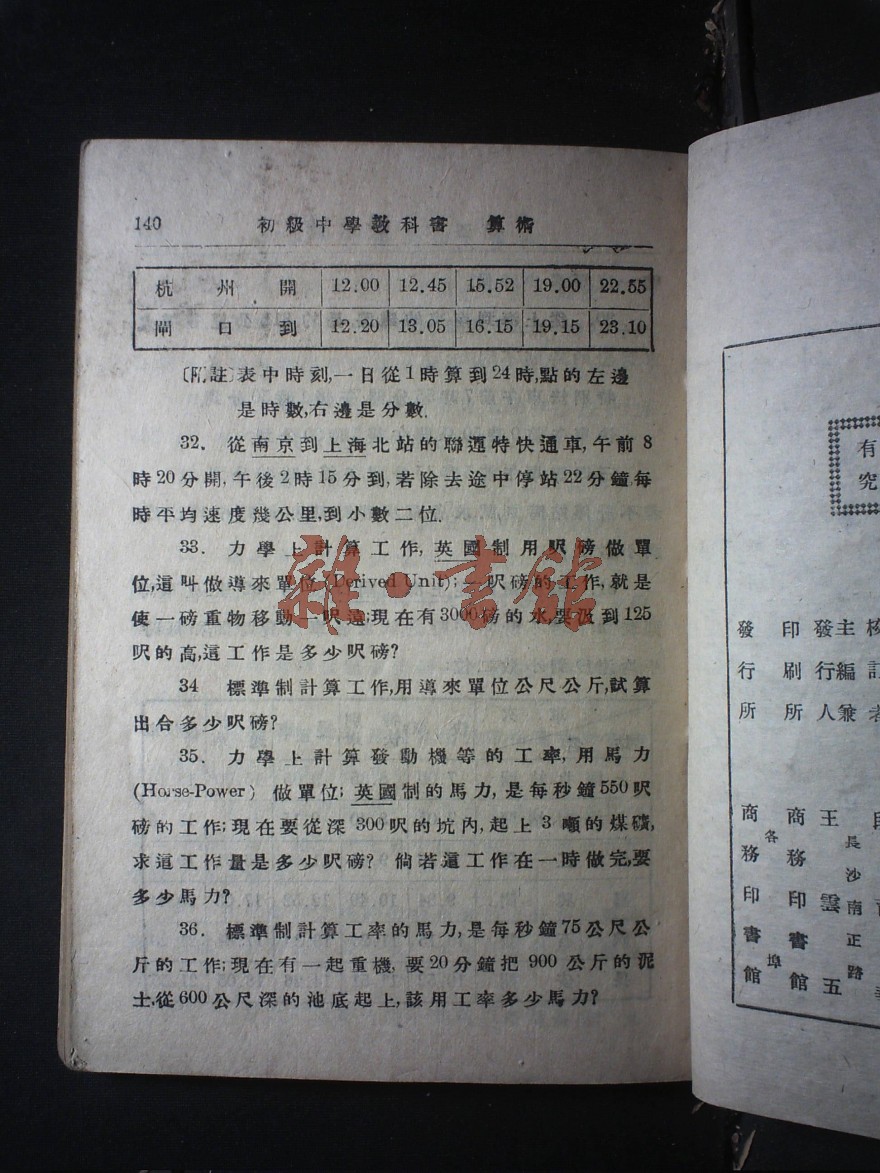 140 初級中學教科書 算術
杭州開 12.00 12.45 15.52 19.00 22.55
閘口到 12.20 13.05 16.15 19.15 23.10
〔附註〕表中時刻,一日從1時算到24時,點的左邊
是時數,右邊是分數.
32. 從南京到上海北站的聯運特快通車,午前8
時20分開,午後2時15分到,若除去途中停站22分鐘,每
時平均速度幾公里,到小數二位.
33. 力學上計算工作,英國制用呎磅做單
位,這叫做導來單位(Derived Unit);一呎磅的工作,就是
使一磅重物移動一呎遠;現在有3000磅的水,要汲到125
呎的高,這工作是多少呎磅?
34 標準制計算工作,用導來單位公尺公斤,試算
出合多少呎磅?
35. 力學上計算發動機等的工率,用馬力
(Horse-Power) 做單位;英國制的馬力,是每秒鐘550呎
磅的工作;現在要從深300呎的坑內,起上3噸的煤礦,
求這工作量是多少呎磅? 倘若這工作在一時做完,要
多少馬力?
36. 標準制計算工率的馬力,是每秒鐘75公尺公
斤的工作;現在有一起重機,要20分鐘把900公斤的泥
土,從600公尺深的池底起上,該用工率多少馬力?
雜·書館
有
究
主編兼
發行人 王雲五
長沙南正路
印刷所 商務印書館
各埠
發行所 商務印書館